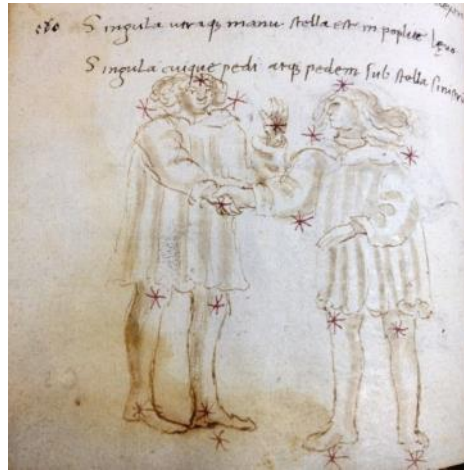 Singula utraq; manu stella est in poplite lęuo
Singula cuique pedi atq; pedem sub stella sinistr